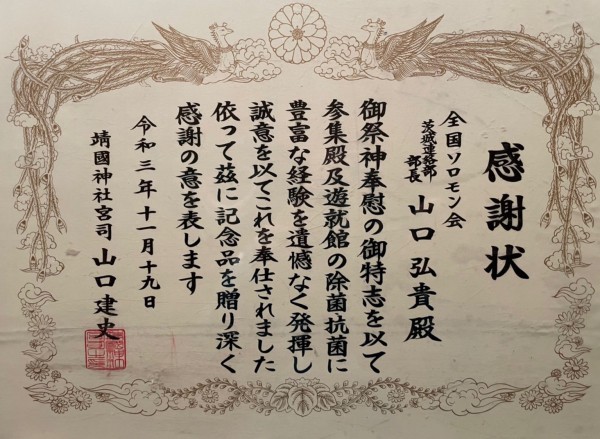 感謝状
全国ソロモン会
茨城連絡部
部長 山口弘貴殿
御祭神奉慰の御特志を以て
参集殿及遊就館の除菌抗菌に
豊富な経験を遺憾なく発揮し
誠意を以てこれを奉仕されました
依って茲に記念品を贈り深く
感謝の意を表します
令和三年十一月十九日
靖國神社宮司 山口建史